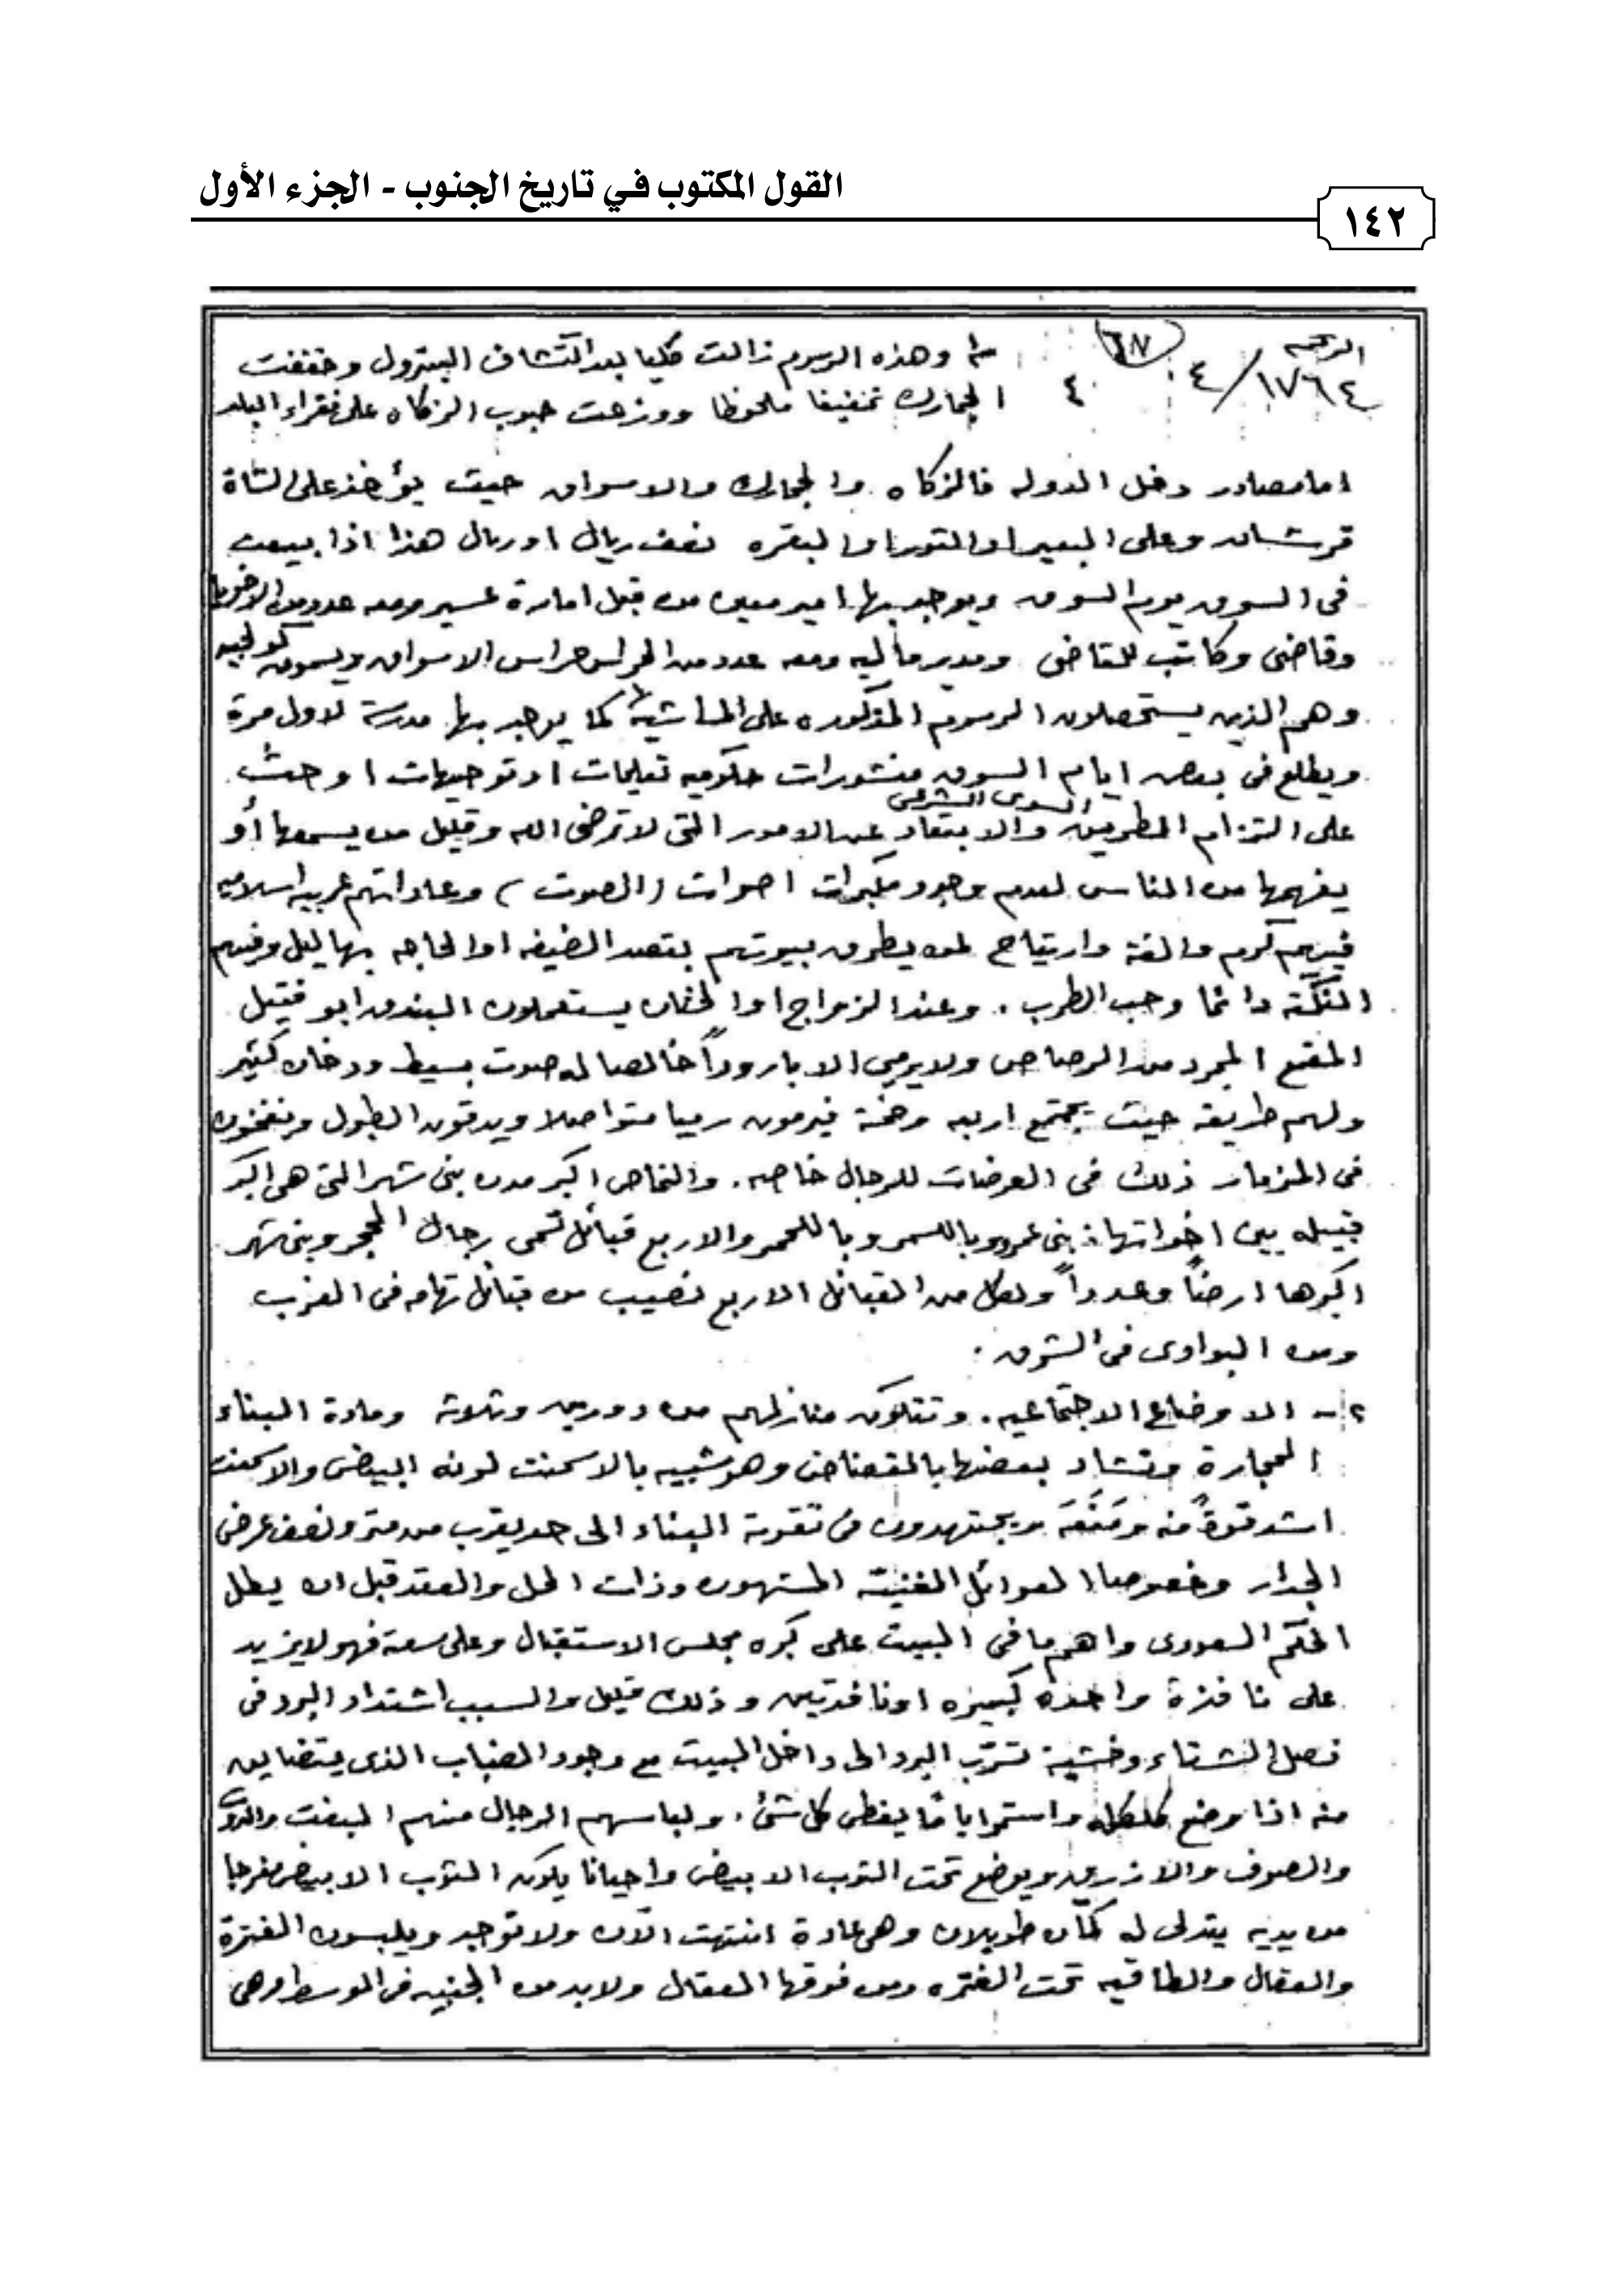 القول المكتوب في تاريخ الجنوب - الجزء الأول
١٤٢
الرقم
١٧٦٤/٤
٦٧
٤
وهذه الرسوم زالت كليا بعد اكتشاف البترول وخففت
الجمارك تخفيفا ملحوظا ووزعت حبوب الزكاه على فقراء البلد
اما مصادر دخل الدوله فالزكاه والجمارك والاسواق حيث يؤخذ على الشاة
قرشان وعلى البعير او الثور او البقره نصف ريال او ريال هذا اذا بيعت
في السوق يوم السوق ويوجد بها امير معين من قبل امارة عسير ومعه عدد من الاخويا
وقاضي وكاتب للقاضي ومدير ماليه ومعه عدد من الحراس حراس الاسواق ويسمون كولجيه
وهم الذين يستحصلون الرسوم المذكوره على الماشيه كما يوجد بها مدرسة لاول مرة
ويطلع في بعض ايام السوق منشورات حكوميه تعليمات او توجيهات او حث
على التزام الطريق السوي الشرعي والابتعاد عن الامور التي لا ترضي الله وقليل من يسمعها أو
يفهمها من الناس لعدم وجود مكبرات اصوات (الصوت) وعاداتهم عربيه اسلاميه
فيهم كرم والفة وارتياح لمن يطرق بيوتهم بقصد الضيفه او الحاجه بها ليل وفيهم
النكتة دائما وحب الطرب . وعند الزواج او الختان يستعملون البندق ابو فتيل
المقمع المجرد من الرصاص ولا يرمي الا باروداً خالصا له صوت بسيط ودخان كثير
ولهم طريقه حيث يجتمع اربعه وخمسة فيرمون رميا متواصلا ويدقون الطبول وينفخون
في المزمار ذلك في العرضات للرجال خاصه . والنماص اكبر مدن بني شهر التي هي اكبر
قبيله بين اخواتها : بني عمرو وباللسمر وباللحمر والاربع قبائل تسمى رجال الحجر وبني شهر
اكبرها ارضاً وعدداً ولكل من القبائل الاربع نصيب من قبائل تهامه في الغرب
ومن البوادي في الشرق .
٢ - الاوضاع الاجتماعيه . وتتكون منازلهم من دورين وثلاثه ومادة البناء
الحجارة وتشاد بعضها بالقضاض وهو شبيه بالاسمنت لونه ابيض والاسمنت
اشد قوة منه ومنعه ويجتهدون في تقوية البناء الى حد يقرب من متر ونصف عرض
الجدار وخصوصا العوائل الغنية المشهوره وذات الحل والعقد قبل ان يطل
الحكم السعودي واهم ما في البيت على كبره مجلس الاستقبال وعلى سعته فهو لا يزيد
على نافذة واحده كبيره او نافذتين وذلك قليل والسبب اشتداد البرد في
فصل الشتاء وخشية تسرّب البرد الى داخل البيت مع وجود الضباب الذي يتضايق
منه اذا وضع كلكله واستمر اياما يغطي كل شئ . ولباسهم الرجال منهم البفت والدوت
والصوف والازرين ويوضع تحت الثوب الابيض واحيانا يكون الثوب الابيض مفرجا
من يديه يتدلى له كمّان طويلان وهي عادة انتهت الآن ولا توجد ويلبسون الغترة
والعقال والطاقيه تحت الغتره ومن فوقها العقال ولابد من الجنبيه في الوسط وهي